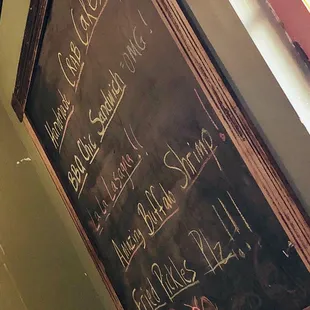 Homemade Crab Cake
BBQ Chic Sandwich "OMG!
LaLa Lasagna!!
Amazing Buffalo Shrimp!
Fried Pickles Plz!!!